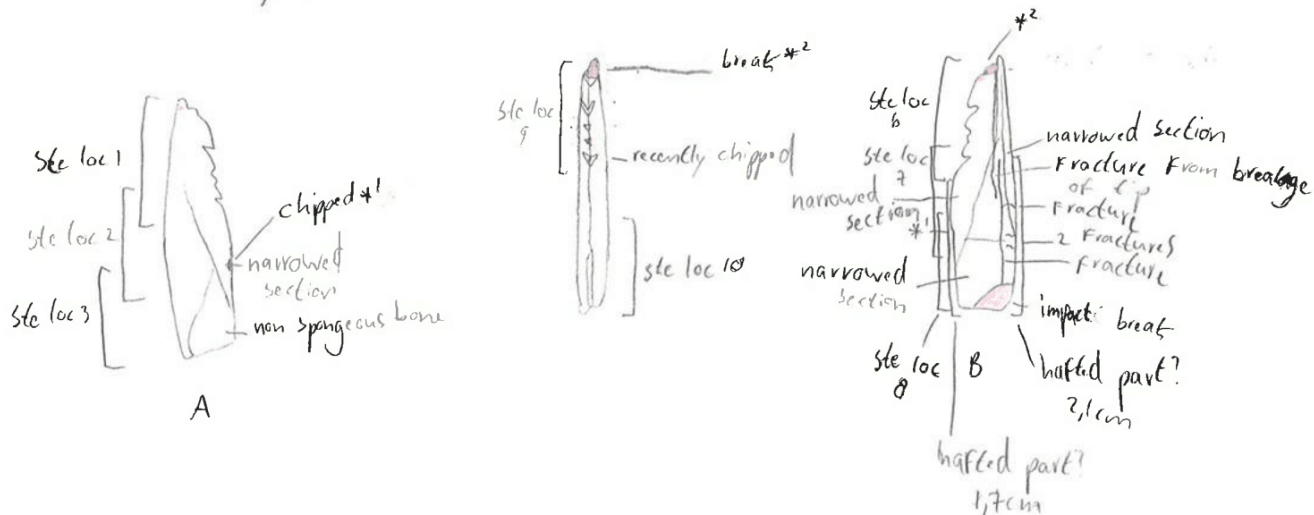 ste loc 1
ste loc 2
ste loc 3
chipped *1
narrowed
section
non spongeous bone
A
break *2
ste loc
9
recently chipped
ste loc 10
*2
ste loc
6
ste loc
7
narrowed
section
*1
narrowed
section
narrowed section
fracture from breakage
of tip
fracture
2 fractures
fracture
impact break
ste loc
8
B
hafted part?
2,1cm
hafted part?
1,7cm